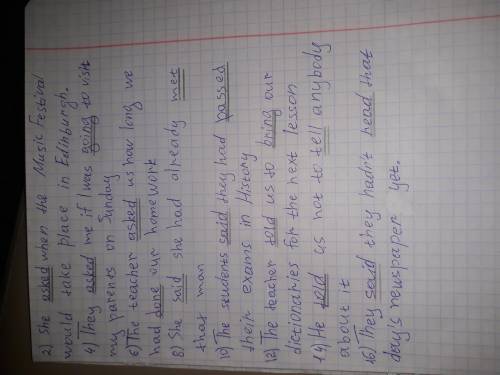 2) She asked when the Music Festival
would take place in Edinburgh.
4) They asked me if I was going to visit
my parents on Sunday
6) The teacher asked us how long we
had done our homework
8) She said she had already met
that man
10) The students said they had passed
their exams in History
12) The teacher told us to bring our
dictionaries for the next lesson
14) He told us not to tell anybody
about it
16) They said they hadn't read that
day's newspaper yet.